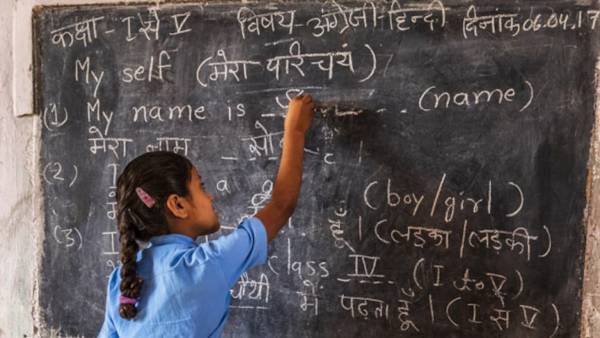 कक्षा - I से V विषय - अंग्रेजी-हिन्दी दिनांक 06.04.17
My self (मेरा परिचय)
(1) My name is S (name)
मेरा नाम सो
(2) a (boy/girl)
हूँ । (लड़का/लड़की)
(3) I class IV (I to V)
चौथी में पढ़ता हूँ । (I से V)